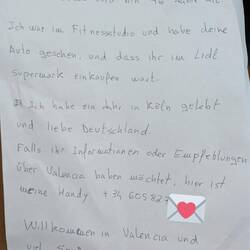 und bin 46 Jahre alt.
Ich war im Fitnesstudio und habe deine
Auto gesehen, und dass ihr im Lidl
Supermark einkaufen wart.
Ich habe ein Jahr in Köln gelebt
und liebe Deutschland.
Falls ihr Informationen oder Empfehlungen
über Valencia haben möchtet, hier ist
meine Handy +34 605 827
Willkommen in Valencia und
viel